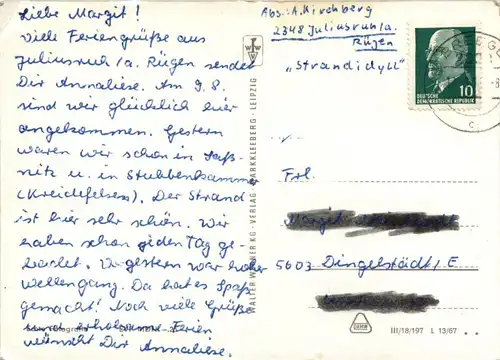 Liebe Margit!
Viele Feriengrüße aus
Juliusruh/a. Rügen sendet
Dir Annaliese. Am 9.8.
sind wir glücklich hier
angekommen. Gestern
waren wir schon in Saß-
nitz u. in Stubbenkammer
(Kreidefelsen). Der Strand
ist hier sehr schön. Wir
haben schon jeden Tag ge-
badet. Vorgestern war hoher
Wellengang. Da hat es Spaß
gemacht! Noch viele Grüße
und erholsame Ferien
wünscht Dir Annaliese.
Abs.: A. Kirchberg
2348 Juliusruh/a.
Rügen
"Strandidyll"
10
DEUTSCHE
DEMOKRATISCHE REPUBLIK
Frl.
5603 Dingelstädt/E
III/18/197 L 13/67